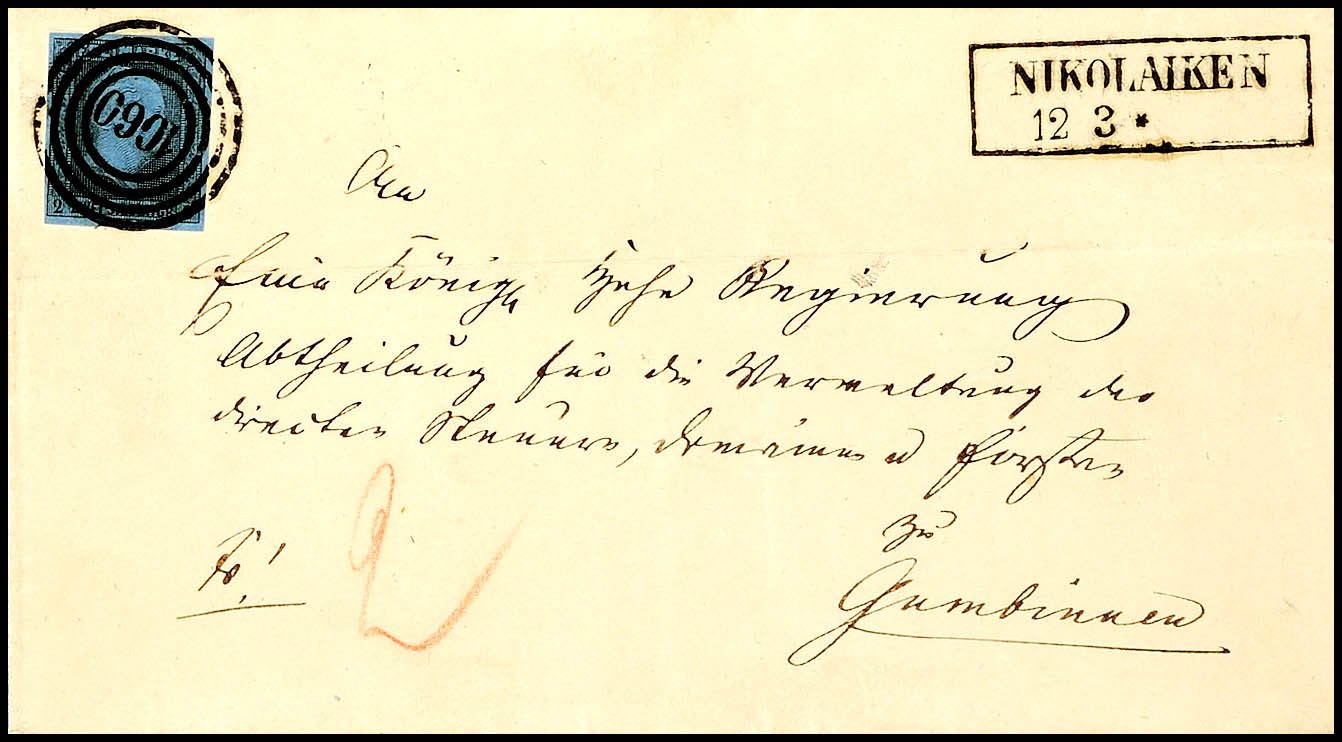 NIKOLAIKEN
12 3 *
An
Eine Königl Hohe Regierung
Abtheilung für die Verwaltung der
directen Steuern, Domainen u Forsten
zu
Gumbinnen
2